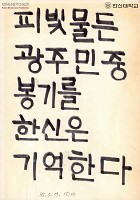 한신대학교
피빛물든
광주민중
봉기를
한신은
기억한다